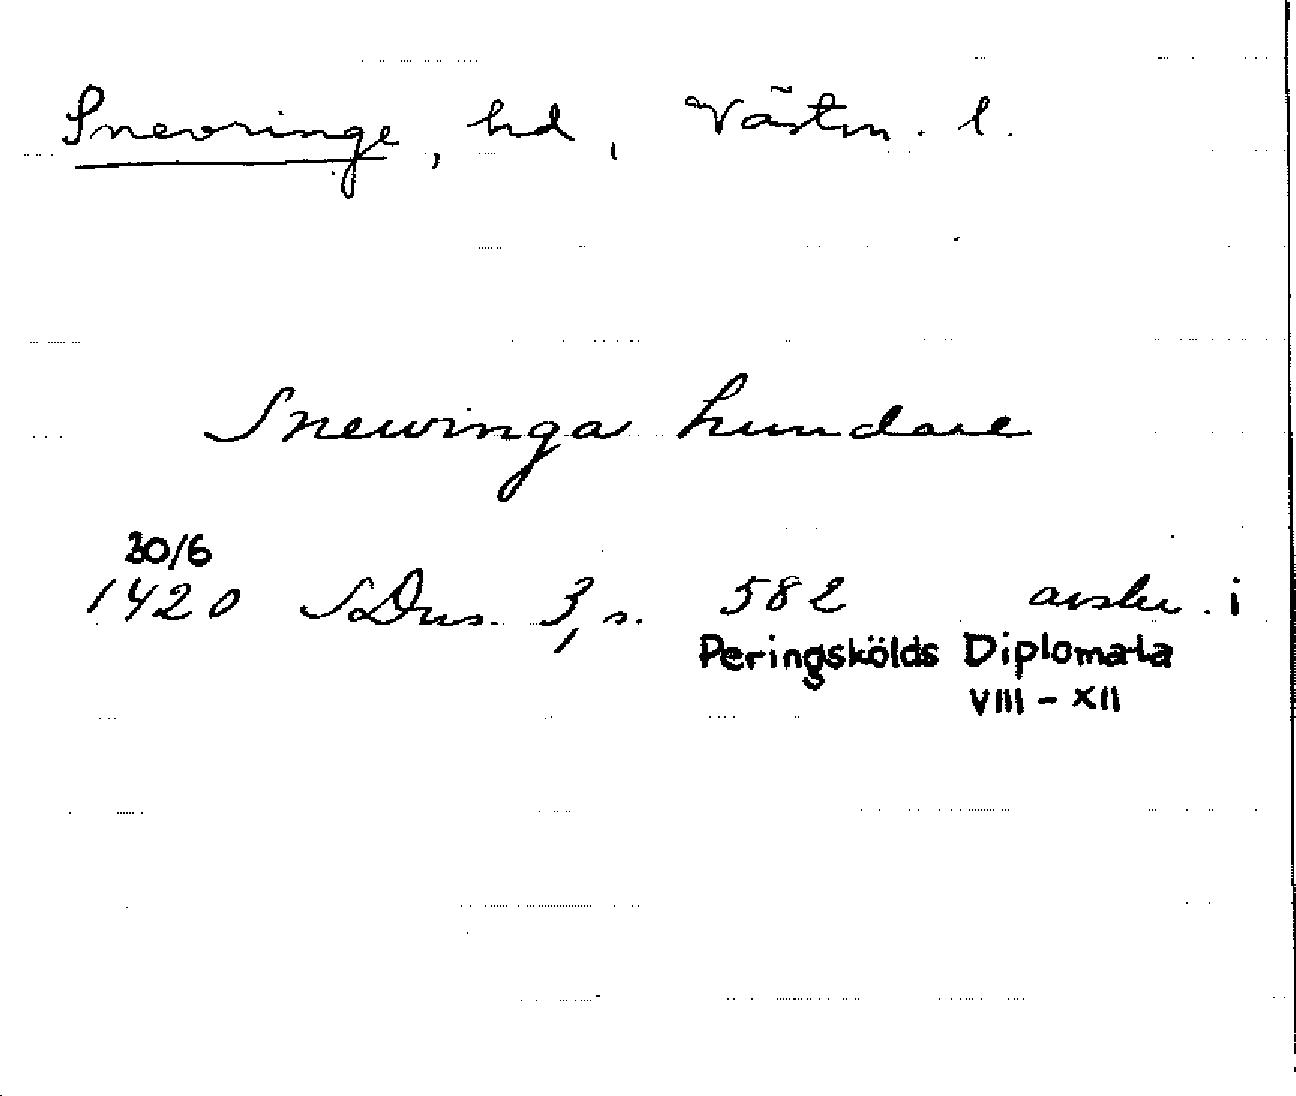 Snevringe, hd, Västm. l.
Snewinga hundare
20/6
1420 SDns. 3, s. 582 avskr. i
Peringskölds Diplomata
VIII - XII